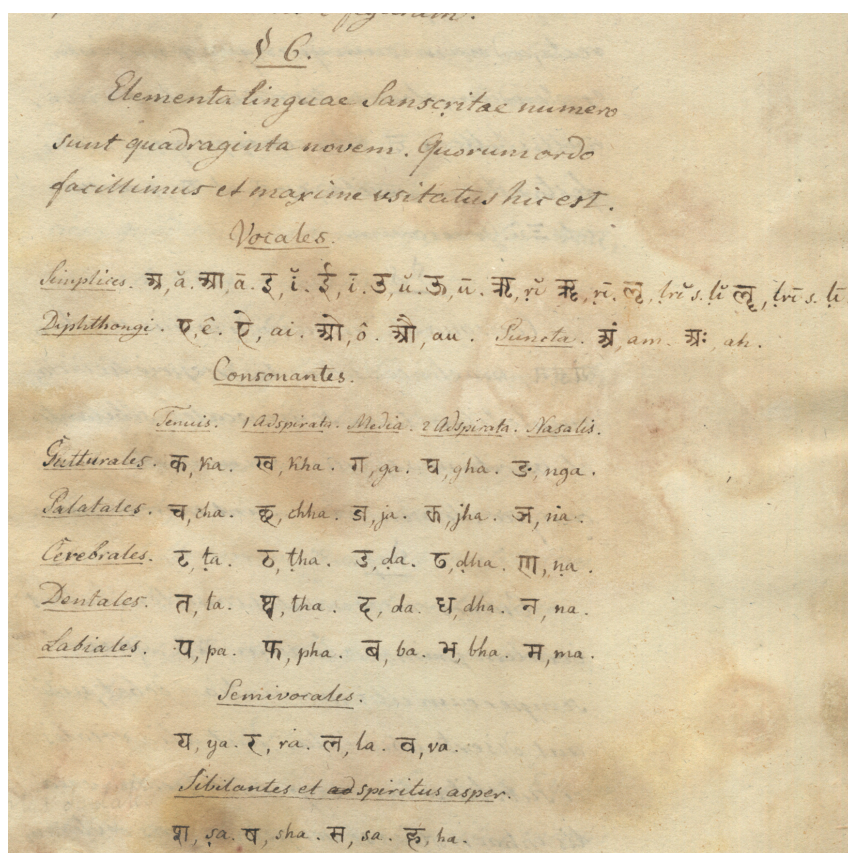 § 6.
Elementa linguae Sanscritae numero
sunt quadraginta novem. Quorum ordo
facillimus et maxime usitatus hic est.
Vocales.
Simplices. अ, ă. आ, ā. इ, ĭ. ई, ī. उ, ŭ. ऊ, ū. ऋ, rĭ ॠ, rī. ऌ, lrĭ s. lĭ ॡ, lrī s. lī
Diphthongi. ए, ê. ऐ, ai. ओ, ô. औ, au. Puncta. अं, am. अः, ah.
Consonantes.
Tenuis. 1 Adspirata. Media. 2 Adspirata. Nasalis.
Gutturales. क, ka. ख, kha. ग, ga. घ, gha. ङ, nga.
Palatales. च, cha. छ, chha. ज, ja. झ, jha. ञ, na.
Cerebrales. ट, ṭa. ठ, ṭha. ड, ḍa. ढ, ḍha. ण, ṇa.
Dentales. त, ta. थ, tha. द, da. ध, dha. न, na.
Labiales. प, pa. फ, pha. ब, ba. भ, bha. म, ma.
Semivocales.
य, ya. र, ra. ल, la. व, va.
Sibilantes et adspiritus asper.
श, ṣa. ष, sha. स, sa. ह, ha.